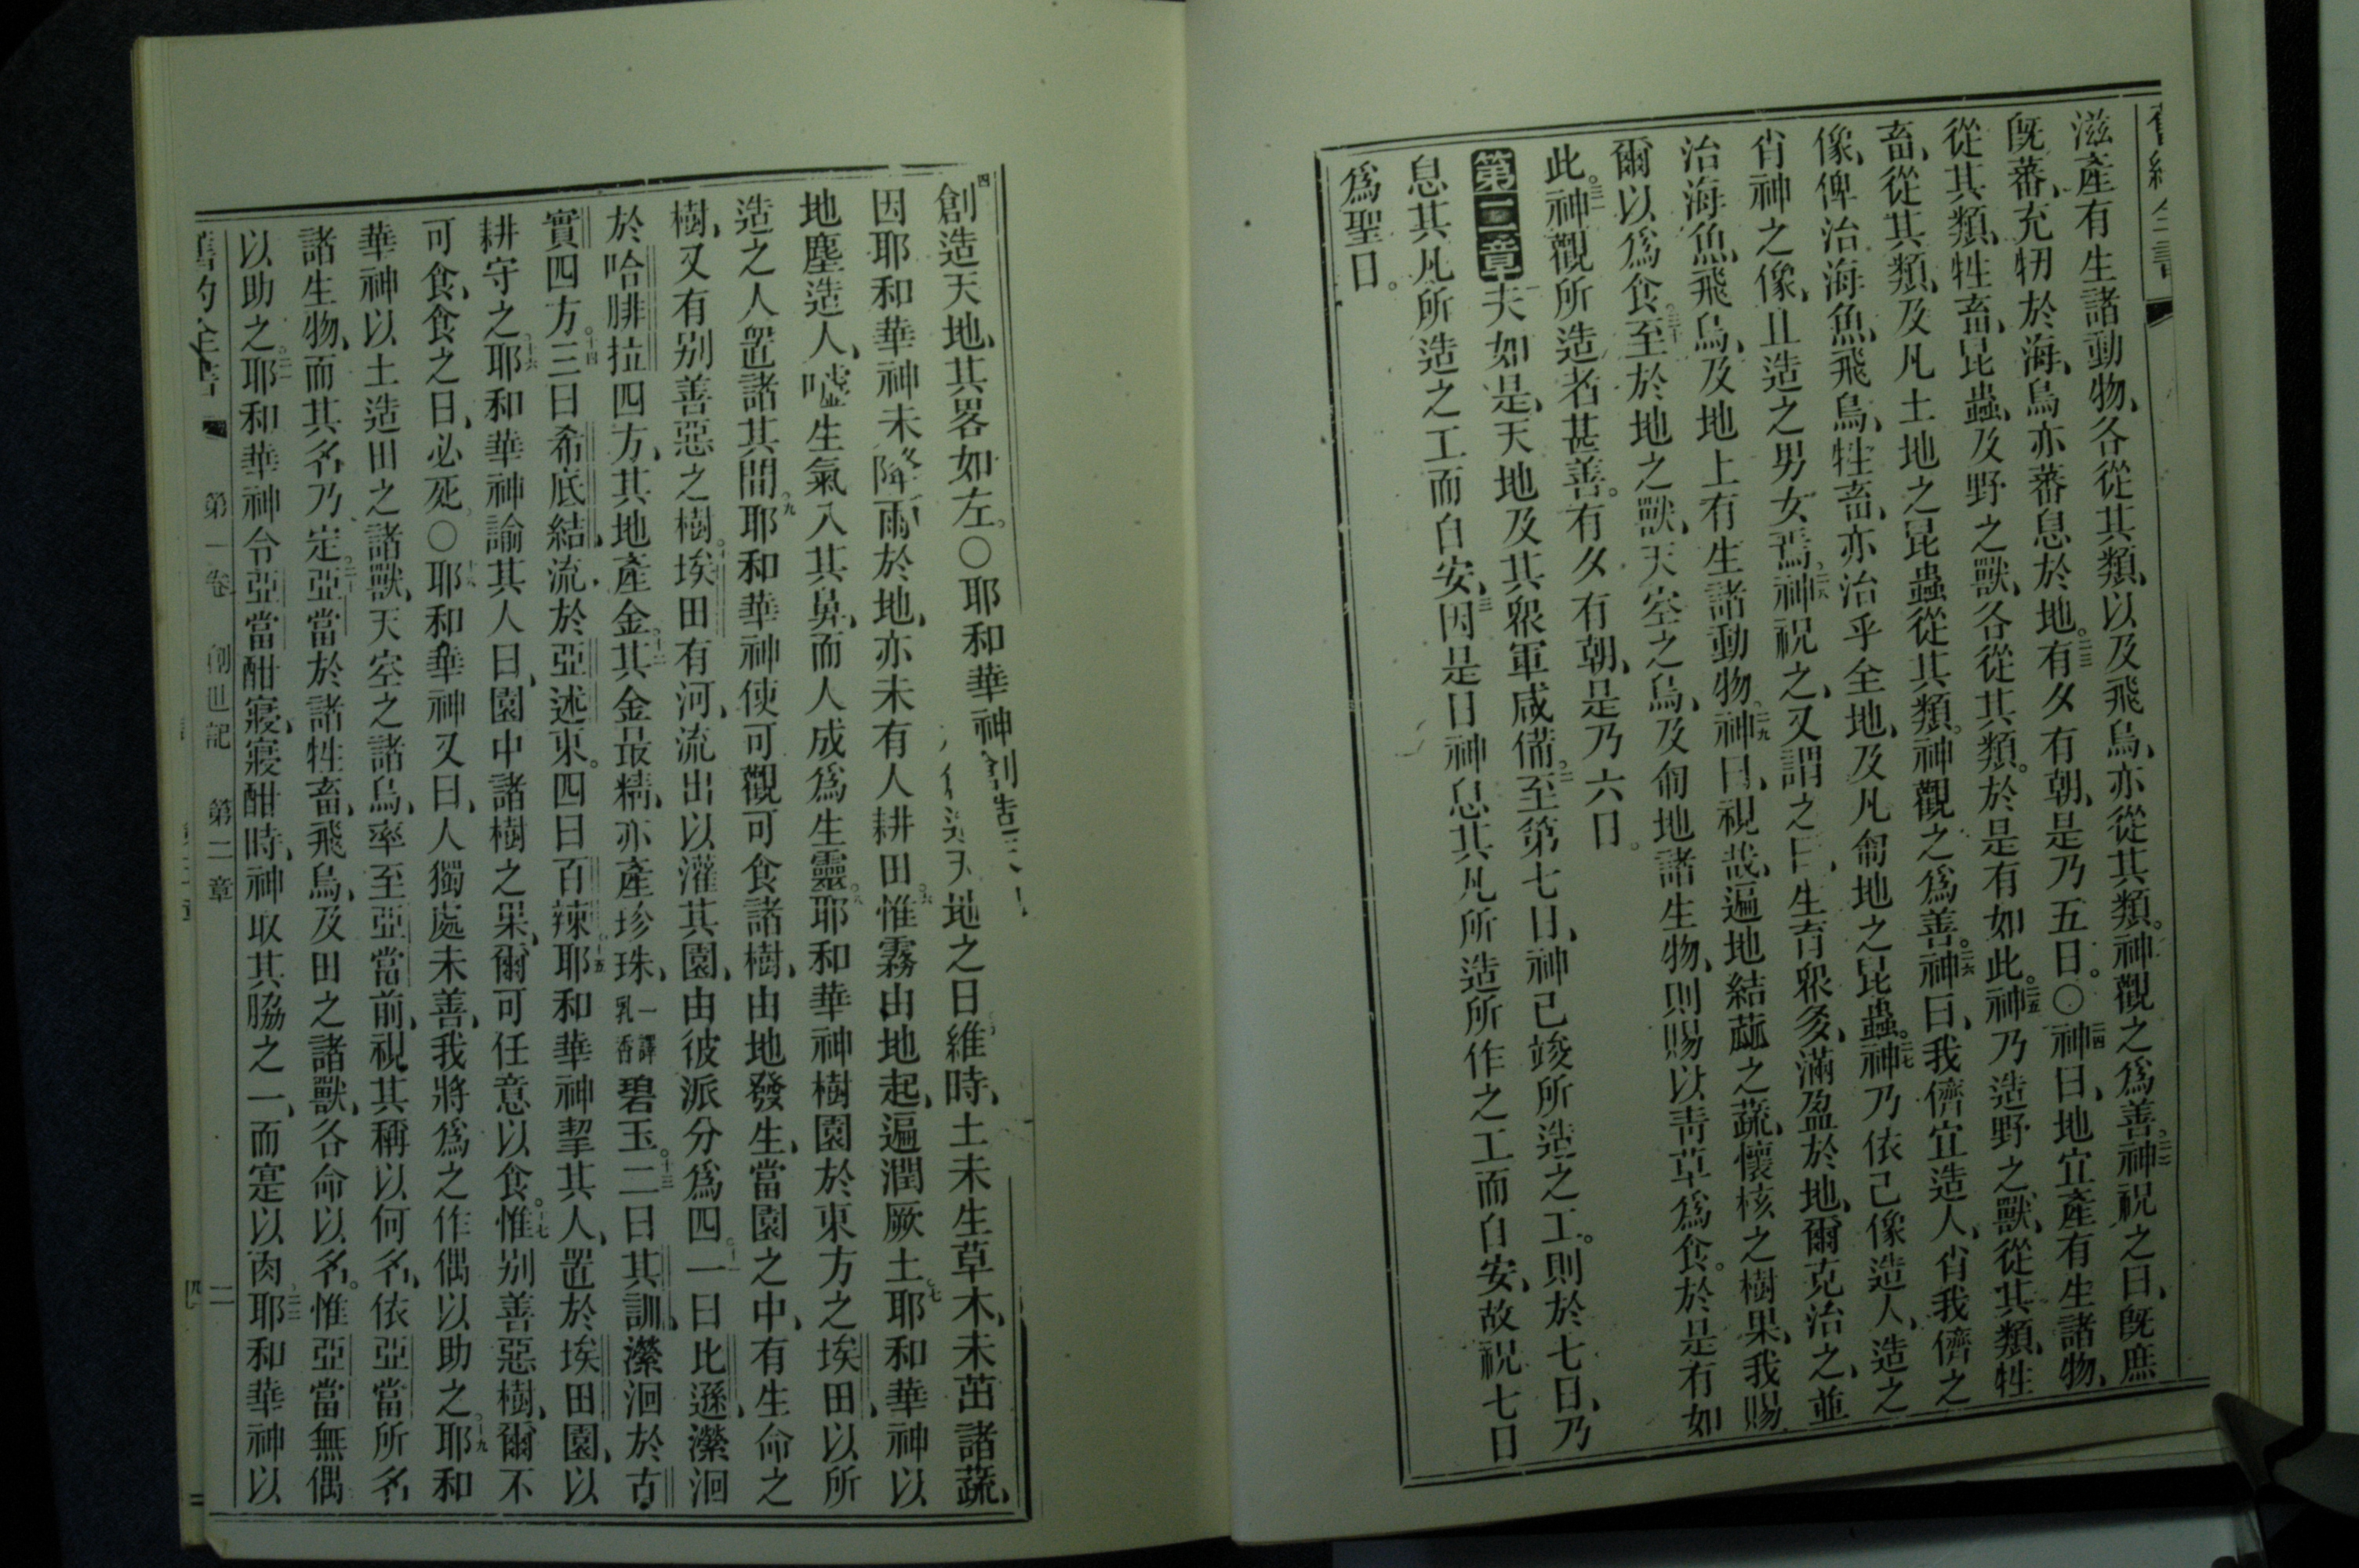 滋產有生諸動物、各從其類、以及飛鳥、亦從其類。神觀之爲善。二二神祝之曰、旣庶
旣蕃、充牣於海、鳥亦蕃息於地。二三有夕有朝、是乃五日。〇二四神曰、地宜產有生諸物、
從其類、牲畜、昆蟲、及野之獸、各從其類。於是有如此。二五神乃造野之獸、從其類、牲
畜、從其類、及凡土地之昆蟲從其類。神觀之爲善。二六神曰、我儕宜造人、肖我儕之
像、俾治海魚、飛鳥、牲畜、亦治乎全地、及凡匍地之昆蟲。二七神乃依己像造人、造之
肖神之像、且造之男女焉、二八神祝之、又謂之曰、生育眾多、滿盈於地、爾克治之、並
治海魚、飛鳥、及地上有生諸動物。二九神曰、視哉、遍地結蓏之蔬、懷核之樹果、我賜
爾以爲食。三十至於地之獸、天空之鳥、及匍地諸生物、則賜以靑草爲食。於是有如
此。三一神觀所造者甚善。有夕有朝、是乃六日。
第二章一夫如是、天地及其眾軍咸備。二至第七日、神已竣所造之工。則於七日、乃
息其凡所造之工而自安、三因是日神息其凡所造所作之工而自安、故祝七日
爲聖日。
四創造天地、其畧如左。〇耶和華神創造天地之日維時、土未生草木、未茁諸蔬、
因耶和華神未降雨於地、亦未有人耕田。六惟霧由地起、遍潤厥土。七耶和華神以
地塵造人、噓生氣入其鼻、而人成爲生靈。八耶和華神樹園於東方之埃田、以所
造之人置諸其間。九耶和華神使可觀可食諸樹、由地發生、當園之中、有生命之
樹、又有別善惡之樹。十埃田有河、流出以灌其園、由彼派分爲四。十一一曰比遜、瀠洄
於哈腓拉四方、其地產金。十二其金最精、亦產珍珠、一譯乳香碧玉。十三二曰其訓、瀠洄於古
實四方。十四三曰希底結、流於亞述東。四曰百辣、十五耶和華神挈其人、置於埃田園、以
耕守之、十六耶和華神諭其人曰、園中諸樹之果、爾可任意以食。十七惟別善惡樹、爾不
可食、食之日、必死。〇十八耶和華神又曰、人獨處未善、我將爲之作偶以助之。十九耶和
華神以土造田之諸獸、天空之諸鳥、率至亞當前、視其稱以何名、依亞當所名
諸生物、而其名乃定。二十亞當於諸牲畜、飛鳥、及田之諸獸、各命以名。惟亞當無偶
以助之。二一耶和華神令亞當酣寢、寢酣時、神取其脇之一、而寔以肉、二二耶和華神以
舊約全書 第一卷 創世記 第二章 二